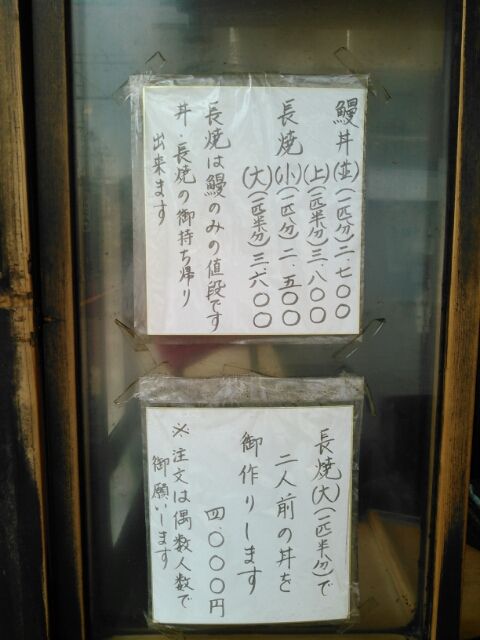 鰻丼(並)(一匹分)二.七〇〇
(上)(一匹半分)三.八〇〇
長焼(小)(一匹分)二.五〇〇
(大)(一匹半分)三.六〇〇
長焼は鰻のみの値段です
丼・長焼の御持ち帰り
出来ます
長焼(大)(一匹半分)で
二人前の丼を
御作りします
四.〇〇〇円
※注文は偶数人数で
御願いします